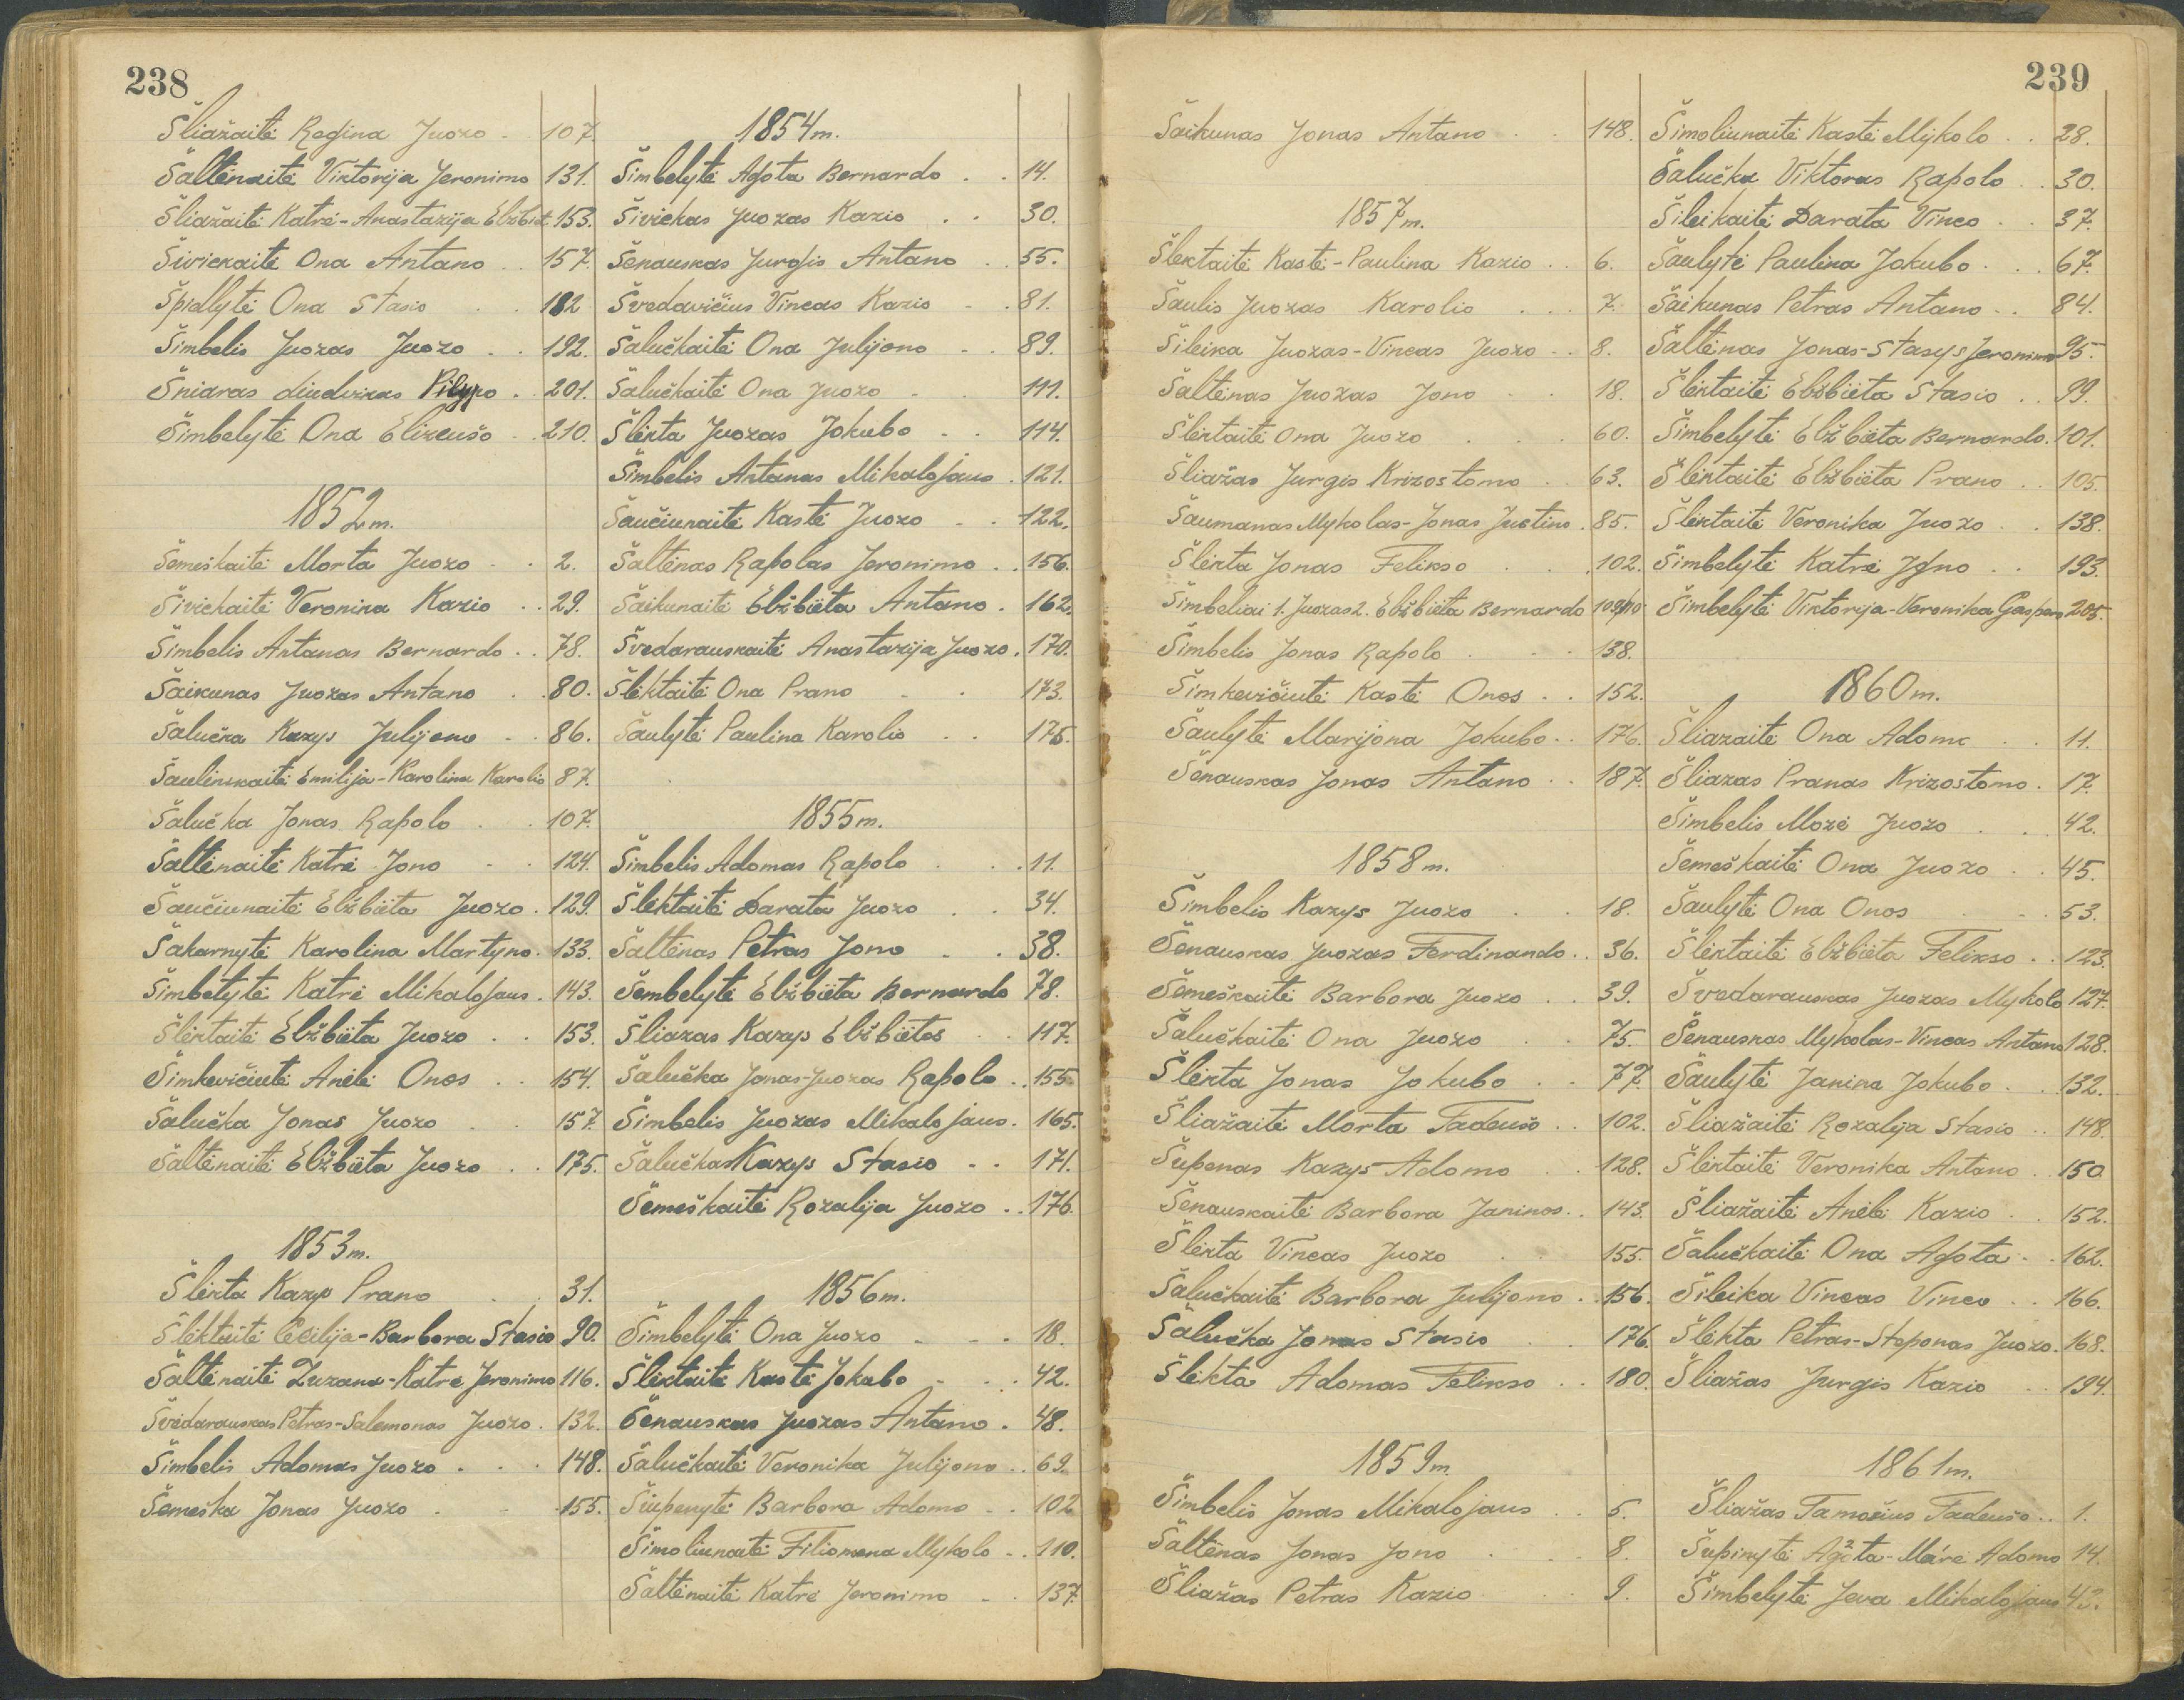 238
Šliažaitė Regina Juozo . 107.
Šaltėnaitė Viktorija Jeronimo 131.
Šliažaitė Katrė-Anastazija Elžbiet. 153.
Šivickaitė Ona Antano . . 157.
Špiellytė Ona Stasio . . 182
Šimbelis Juozas Juozo . . 192.
Šniaras Liudvikas Pilypo . 201.
Šimbelytė Ona Elizeušo . . 210.
1852 m.
Šemeškaitė Morta Juozo . . 2.
Šivickaitė Veronika Kazio . . 29.
Šimbelis Antanas Bernardo . . 78.
Šaikunas Juozas Antano . . 80.
Šalučka Kazys Julijono . . 86.
Šaulinskaitė Emilija-Karolina Karolio 87.
Šalučka Jonas Rapolo . . 107.
Šaltėnaitė Katrė Jono . . 124.
Šaučiunaitė Elžbiėta Juozo . 129.
Šakarnytė Karolina Martyno . 133.
Šimbelytė Katrė Mikalojaus . 143.
Šlektaitė Elžbiėta Juozo . . 153.
Šimkevičiutė Anėlė Onos . . 154.
Šalučka Jonas Juozo . . 157.
Šaltėnaitė Elžbiėta Juozo . . 175.
1853 m.
Šlekta Kazys Prano . . 31.
Šlektaitė Cecilija-Barbora Stasio 90.
Šaltėnaitė Zuzana-Katrė Jeronimo 116.
Švedarauskas Petras-Salemonas Juozo . 132.
Šimbelis Adomas Juozo . . . 148.
Šemeška Jonas Juozo . . . 155.
1854 m.
Šimbelytė Agota Bernardo . . 14.
Šivickas Juozas Kazio . . 30.
Šenauskas Jurgis Antano . . 55.
Švedavičius Vincas Kazio . . 81.
Šalučkaitė Ona Julijono . . 89.
Šalučkaitė Ona Juozo . . 111.
Šlekta Juozas Jokubo . . 114.
Šimbelis Antanas Mikalojaus . 121.
Šaučiunaitė Kastė Juozo . . 122.
Šaltėnas Rapolas Jeronimo . . 156.
Šaikunaitė Elžbiėta Antano . 162.
Švedarauskaitė Anastazija Juozo . 170.
Šlektaitė Ona Prano . . 173.
Šaulytė Paulina Karolio . . 175.
1855 m.
Šimbelis Adomas Rapolo . . . 11.
Šlektaitė Darata Juozo . . 34.
Šaltėnas Petras Jono . . 38.
Šembelytė Elžbiėta Bernardo 78.
Šliazas Kazys Elžbiėtos . . 117.
Šalučka Jonas-Juozas Rapolo . . 155.
Šimbelis Juozas Mikalojaus . 165.
Šalučkas Kazys Stasio . . 171.
Šemeškaitė Rozalija Juozo . . 176.
1856 m.
Šimbelytė Ona Juozo . . . 18.
Šlektaitė Kastė Jokubo . . . 42.
Šenauskas Juozas Antano . 48.
Šalučkaitė Veronika Julijono . . 69.
Šiupenytė Barbora Adomo . . 102
Šimoliunaitė Filiomena Mykolo . . 110.
Šaltėnaitė Katrė Jeronimo . . 137.
239
Šaikunas Jonas Antano . . 148.
1857 m.
Šlektaitė Kastė-Paulina Kazio . . 6.
Šaulis Juozas Karolio . . . 7.
Šileika Juozas-Vincas Juozo . . 8.
Šaltėnas Juozas Jono . . 18.
Šlektaitė Ona Juozo . . . 60.
Šliažas Jurgis Krizostomo . . 63.
Šaumanas Mykolas-Jonas Justino . 85.
Šlekta Jonas Felikso . . . 102.
Šimbeliai 1. Juozas 2. Elžbiėta Bernardo 109/110
Šimbelis Jonas Rapolo . . . 138.
Šimkevičiutė Kastė Onos . . 152.
Šaulytė Marijona Jokubo . . 176.
Šenauskas Jonas Antano . . 187.
1858 m.
Šimbelis Kazys Juozo . . 18.
Šenauskas Juozas Ferdinando . . 36.
Šemeškaitė Barbora Juozo . . 39.
Šalučkaitė Ona Juozo . . 75.
Šlekta Jonas Jokubo . . 77.
Šliažaitė Morta Tadeušo . . 102.
Šupenas Kazys Adomo . . 128.
Šenauskaitė Barbora Janinos . . 143.
Šlekta Vincas Juozo . . 155.
Šalučkaitė Barbora Julijono . . 156.
Šalučka Jonas Stasio . . 176.
Šlekta Adomas Felikso . . 180.
1859 m.
Šimbelis Jonas Mikalojaus . . 5.
Šaltėnas Jonas Jono . . . 8.
Šliažas Petras Kazio . . 9.
Šimoliunaitė Kastė Mykolo . . 28.
Šalučka Viktoras Rapolo . . 30.
Šileikaitė Darata Vinco . . 37.
Šaulytė Paulina Jokubo . . . 67.
Šaikunas Petras Antano . . 84.
Šaltėnas Jonas-Stasys Jeronimo 95.
Šlektaitė Elžbiėta Stasio . . 99.
Šimbelytė Elžbiėta Bernardo . 101.
Šlektaitė Elžbiėta Prano . . 105.
Šlektaitė Veronika Juozo . . 138.
Šimbelytė Katrė Igno . . 193.
Šimbelytė Viktorija-Veronika Gaspero 205.
1860 m.
Šliazaitė Ona Adomo . . 11.
Šliazas Pranas Krizostomo . 17.
Šimbelis Mozė Juozo . . . 42.
Šemeškaitė Ona Juozo . . 45.
Šaulytė Ona Onos . . . 53.
Šlektaitė Elžbiėta Felikso . . 123.
Švedarauskas Juozas Mykolo 127.
Šenauskas Mykolas-Vincas Antano 128.
Šaulytė Janina Jokubo . . 132.
Šliažaitė Rozalija Stasio . . 148.
Šlektaitė Veronika Antano . 150
Šliažaitė Anėlė Kazio . . 152.
Šalučkaitė Ona Agota . . 162.
Šileika Vincas Vinco . . 166.
Šlekta Petras-Steponas Juozo . 168.
Šliažas Jurgis Kazio . . 194.
1861 m.
Šliažas Tamošius Tadeušo . . 1.
Šupinytė Agota-Marė Adomo 14.
Šimbelytė Jeva Mikalojaus 42.